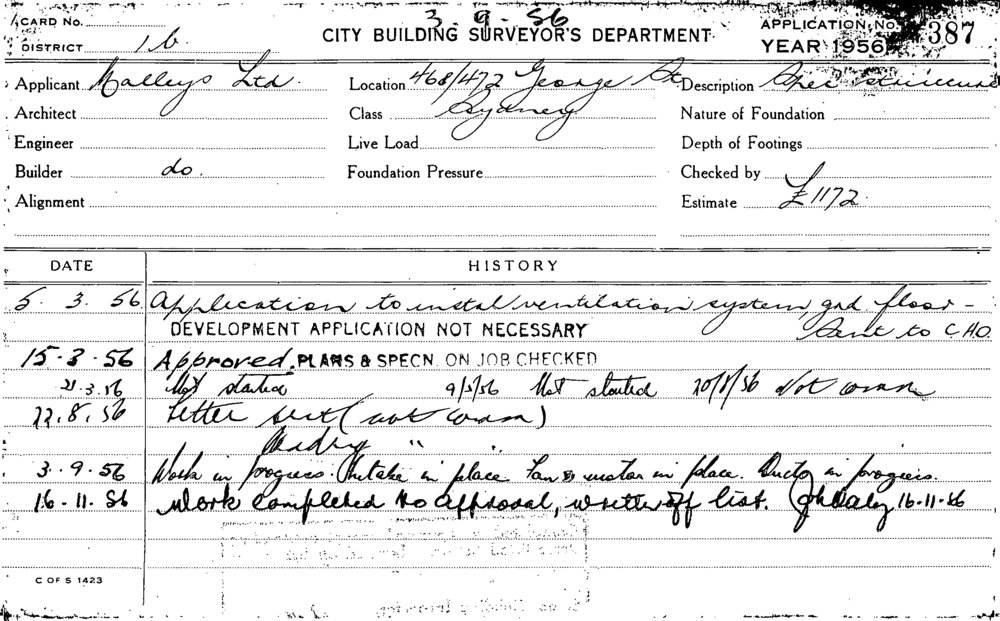 3. 9. 56
CARD No.
CITY BUILDING SURVEYOR'S DEPARTMENT
APPLICATION No. 387
DISTRICT 1b.
YEAR 1956
Applicant Malleys Ltd. Location 468/472 George St. Description
Architect Class Sydney Nature of Foundation
Engineer Live Load Depth of Footings
Builder do. Foundation Pressure Checked by
Alignment Estimate £1172
DATE HISTORY
5. 3. 56 Application to instal ventilation system, grd floor -
DEVELOPMENT APPLICATION NOT NECESSARY Sent to C.H.O.
15-3-56 Approved. PLANS & SPECN. ON JOB CHECKED
21.3.56 Not started 9/5/56 Not started 20/8/56 Not comm
22.8.56 Letter sent (not comm)
" "
3.9.56 Work in progress. Intake in place. Fan & motor in place. Ducts in progress.
16-11-56 Work completed to approval, written off list. 16-11-56
C OF S 1423